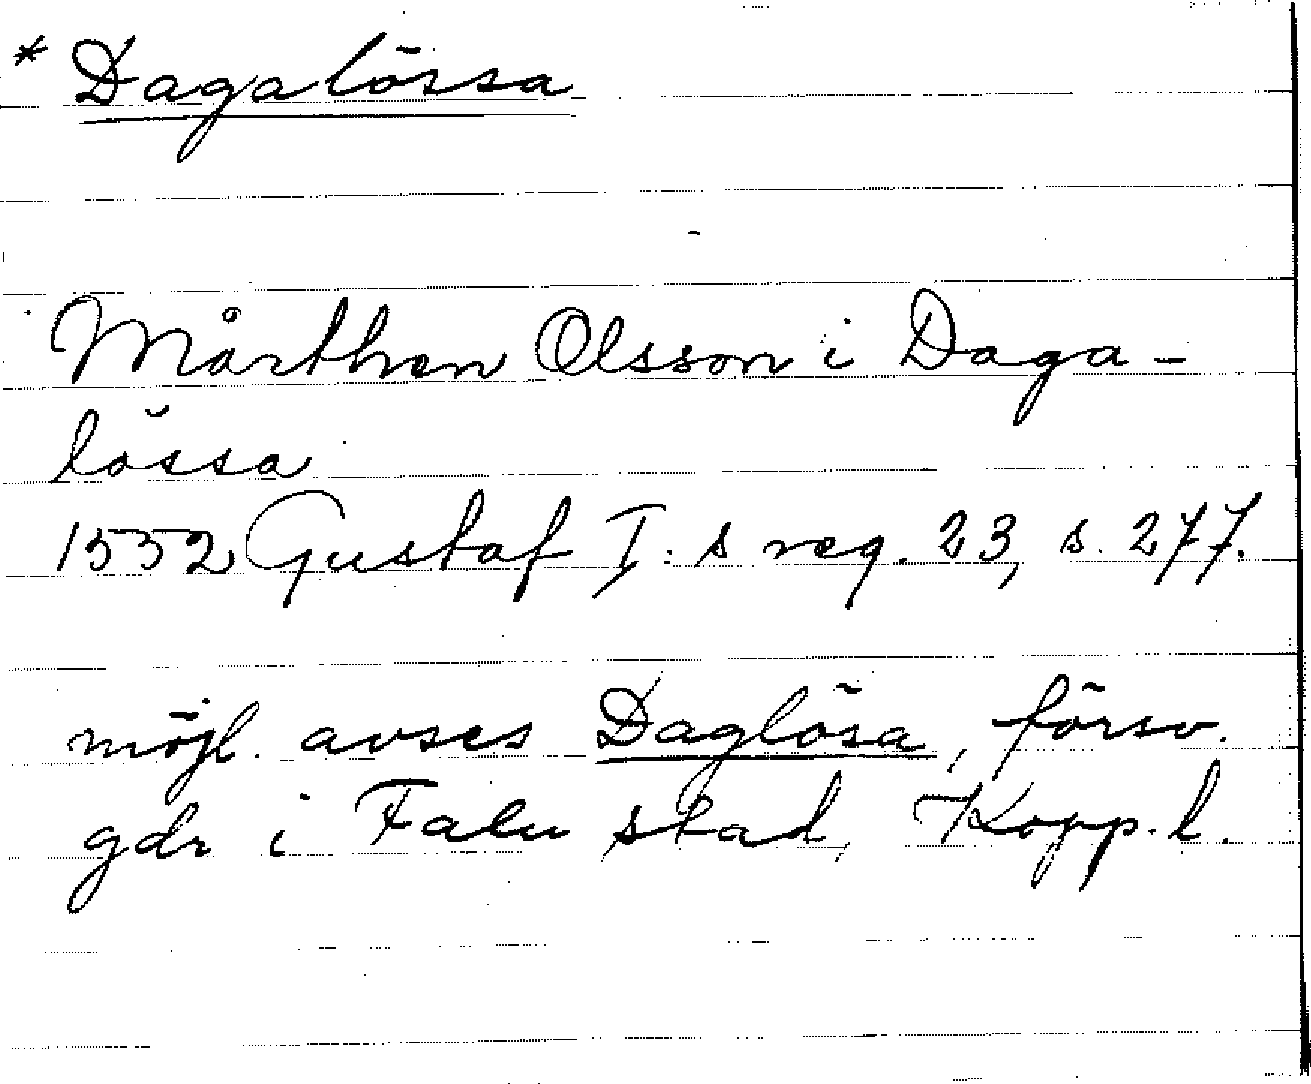 * Dagalössa
Mårthen Olsson i Daga-
lössa
1552 Gustaf I:s reg. 23, s. 277.
möjl. avses Daglösa, försv.
gdr i Falu stad, Kopp. l.